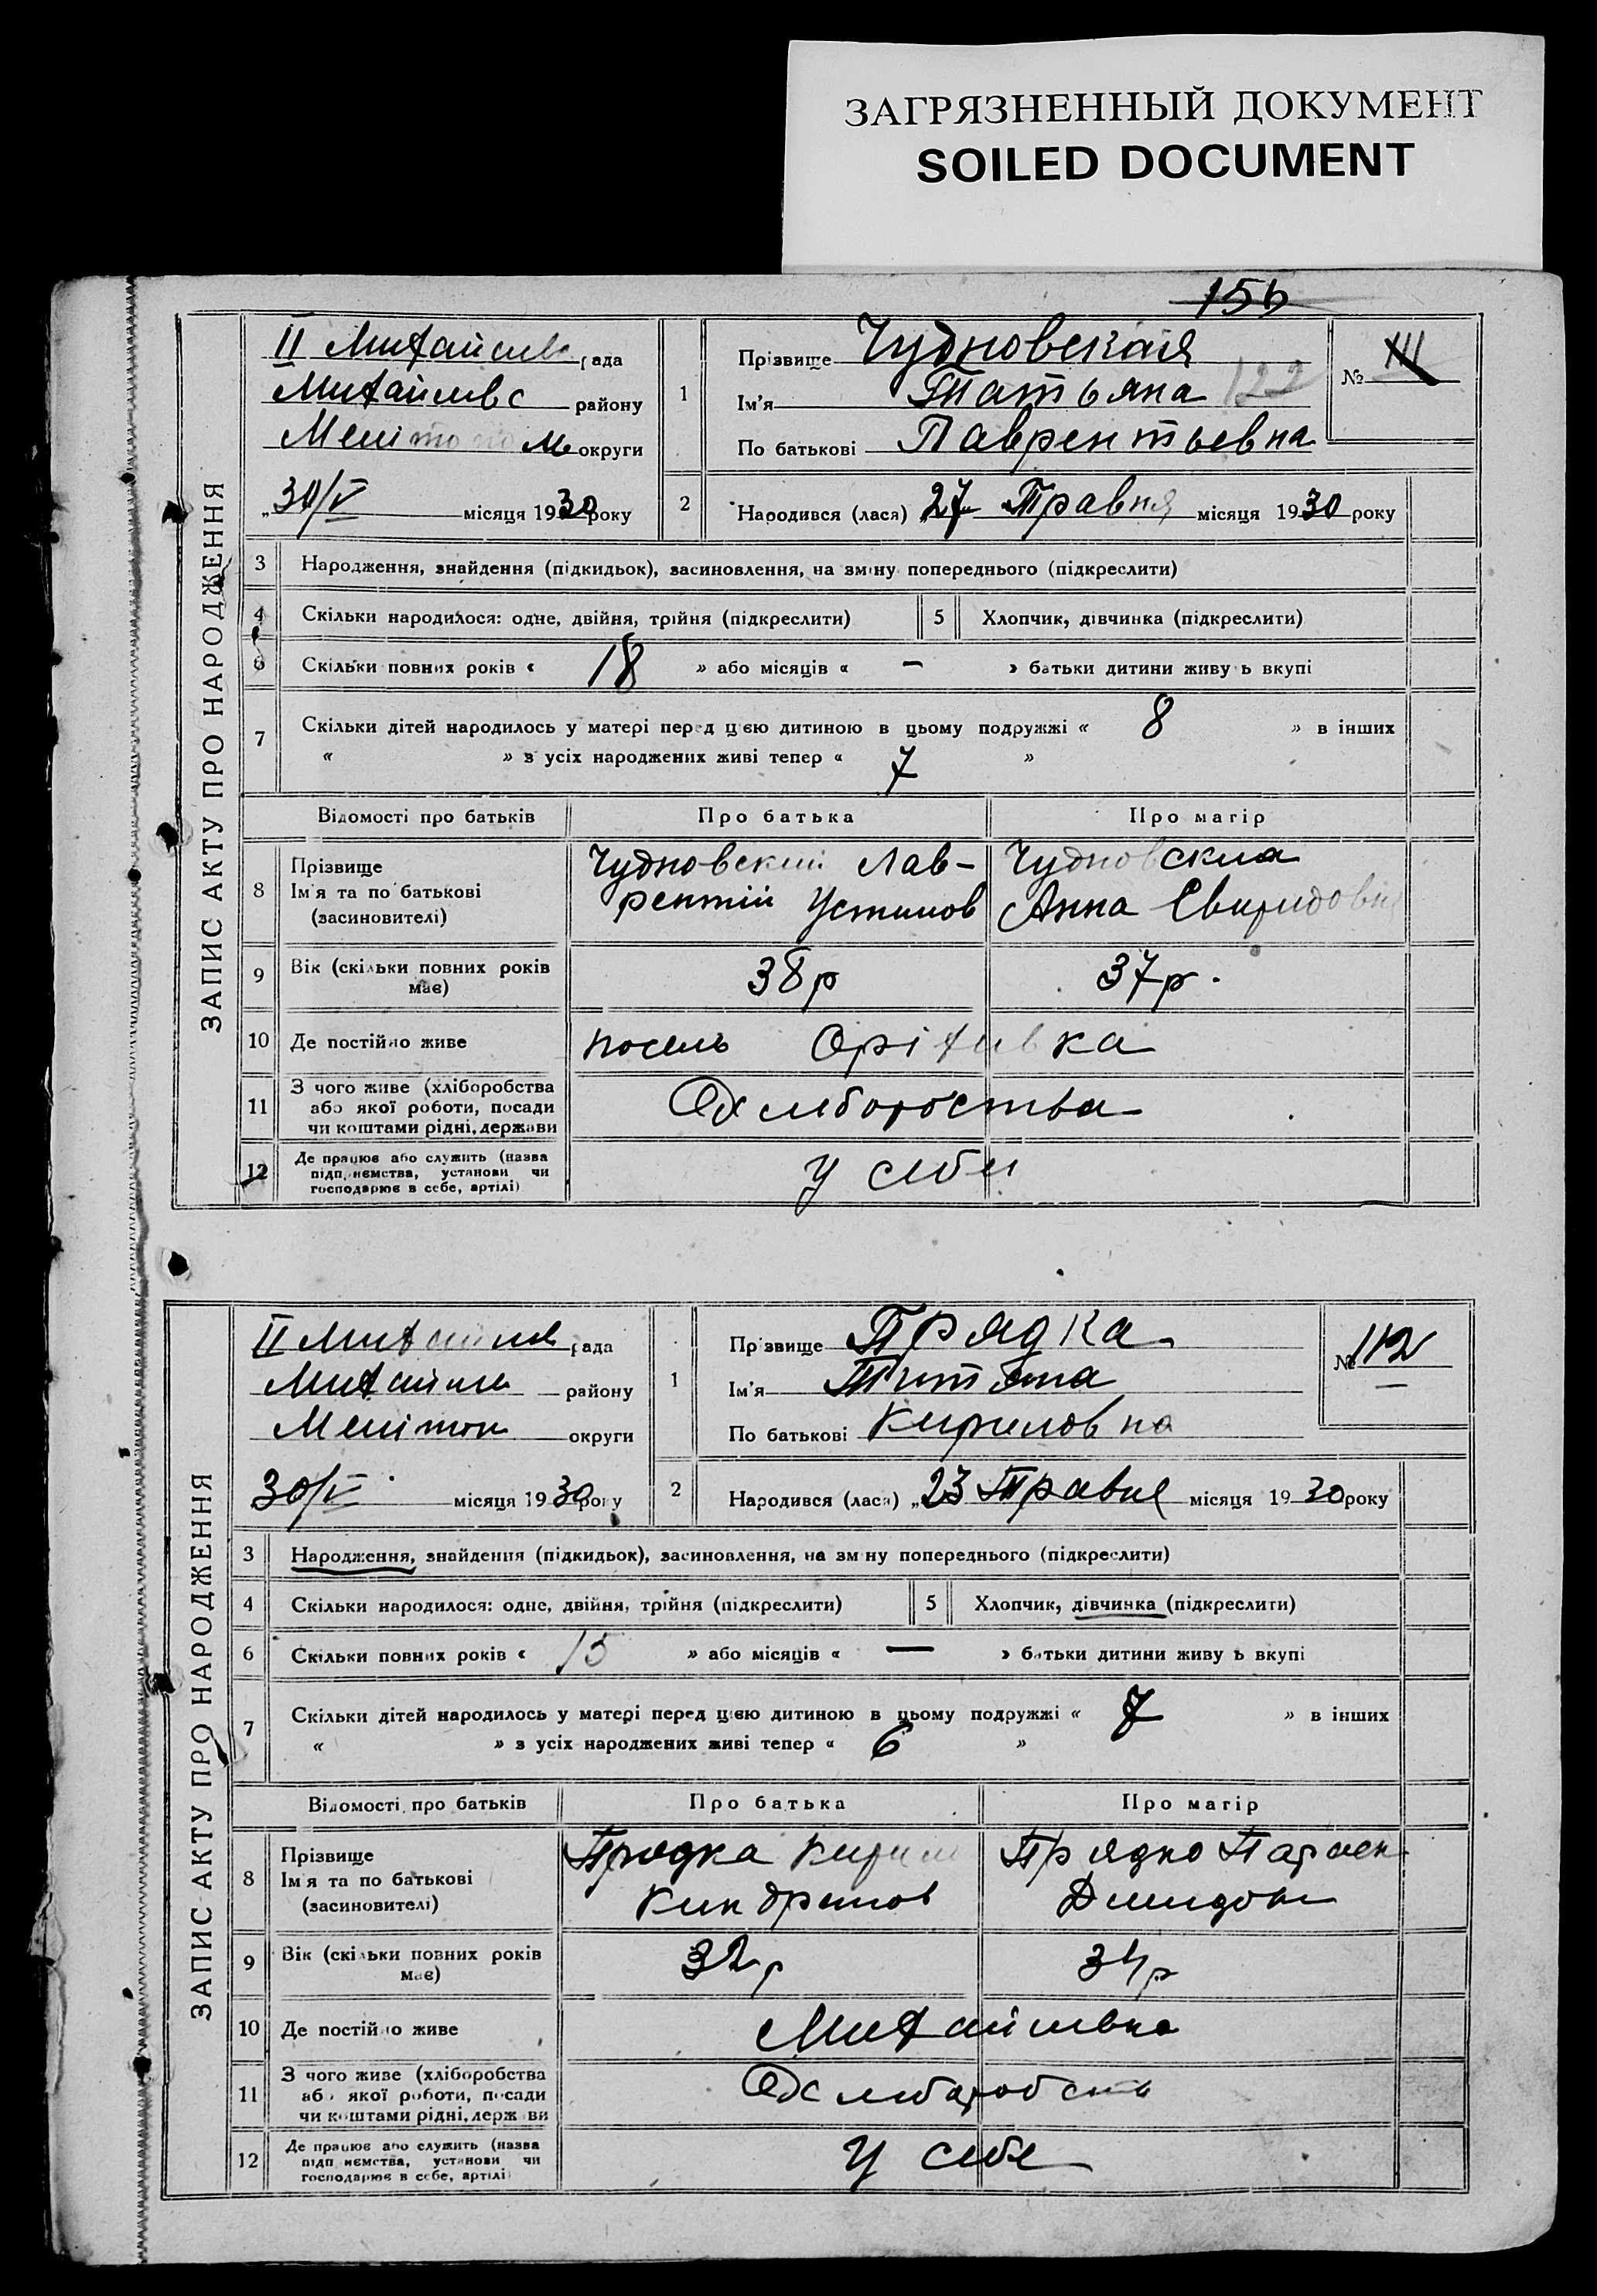 ЗАГРЯЗНЕННЫЙ ДОКУМЕНТ
SOILED DOCUMENT
ЗАПИС АКТУ ПРО НАРОДЖЕННЯ
II Михайлів рада
Михайлівс району
Меліто м округи
30/V місяця 1930 року
1
Прізвище Чудновская
Ім'я Татьяна 122
По батькові Лаврентьевна
№ 111
2
Народився (лася) 27 Травня місяця 1930 року
3 Народження, знайдення (підкидьок), засиновлення, на зміну попереднього (підкреслити)
4 Скільки народилося: одне, двійня, трійня (підкреслити) 5 Хлопчик, дівчинка (підкреслити)
6 Скільки повних років « 18 » або місяців « — » батьки дитини живуть вкупі
7 Скільки дітей народилось у матері перед цією дитиною в цьому подружжі « 8 » в інших
« » з усіх народжених живі тепер « 7 »
Відомості про батьків Про батька Про матір
8 Прізвище
Ім'я та по батькові
(засиновителі)
Чудновский Лав-
рентій Устинов
Чудновская
Анна Свиридовна
9 Вік (скільки повних років має) 38р 37р.
10 Де постійно живе посель Оріхивка
11 З чого живе (хліборобства
або якої роботи, посади
чи коштами рідні, держави
12 Де працює або служить (назва
підприємства, установи чи
господарює в себе, артілі)
у себе
ЗАПИС АКТУ ПРО НАРОДЖЕННЯ
II Михайлів рада
Михайлів району
Мелітоп округи
30/V місяця 1930 року
1
Прізвище Прядка
Ім'я Титяна
По батькові Кириловна
№ 112
2
Народився (лася) „23 Травня місяця 1930 року
3 Народження, знайдення (підкидьок), засиновлення, на зміну попереднього (підкреслити)
4 Скільки народилося: одне, двійня, трійня (підкреслити) 5 Хлопчик, дівчинка (підкреслити)
6 Скільки повних років « 15 » або місяців « — » батьки дитини живуть вкупі
7 Скільки дітей народилось у матері перед цією дитиною в цьому подружжі « 7 » в інших
« » з усіх народжених живі тепер « 6 »
Відомості про батьків Про батька Про матір
8 Прізвище
Ім'я та по батькові
(засиновителі)
Прядка Кирил
Киндратов
Прядко Параск
Демидовн
9 Вік (скільки повних років має) 32р 34р
10 Де постійно живе Михайлівка
11 З чого живе (хліборобства
або якої роботи, посади
чи коштами рідні, держави
12 Де працює або служить (назва
підприємства, установи чи
господарює в себе, артілі)
у себе